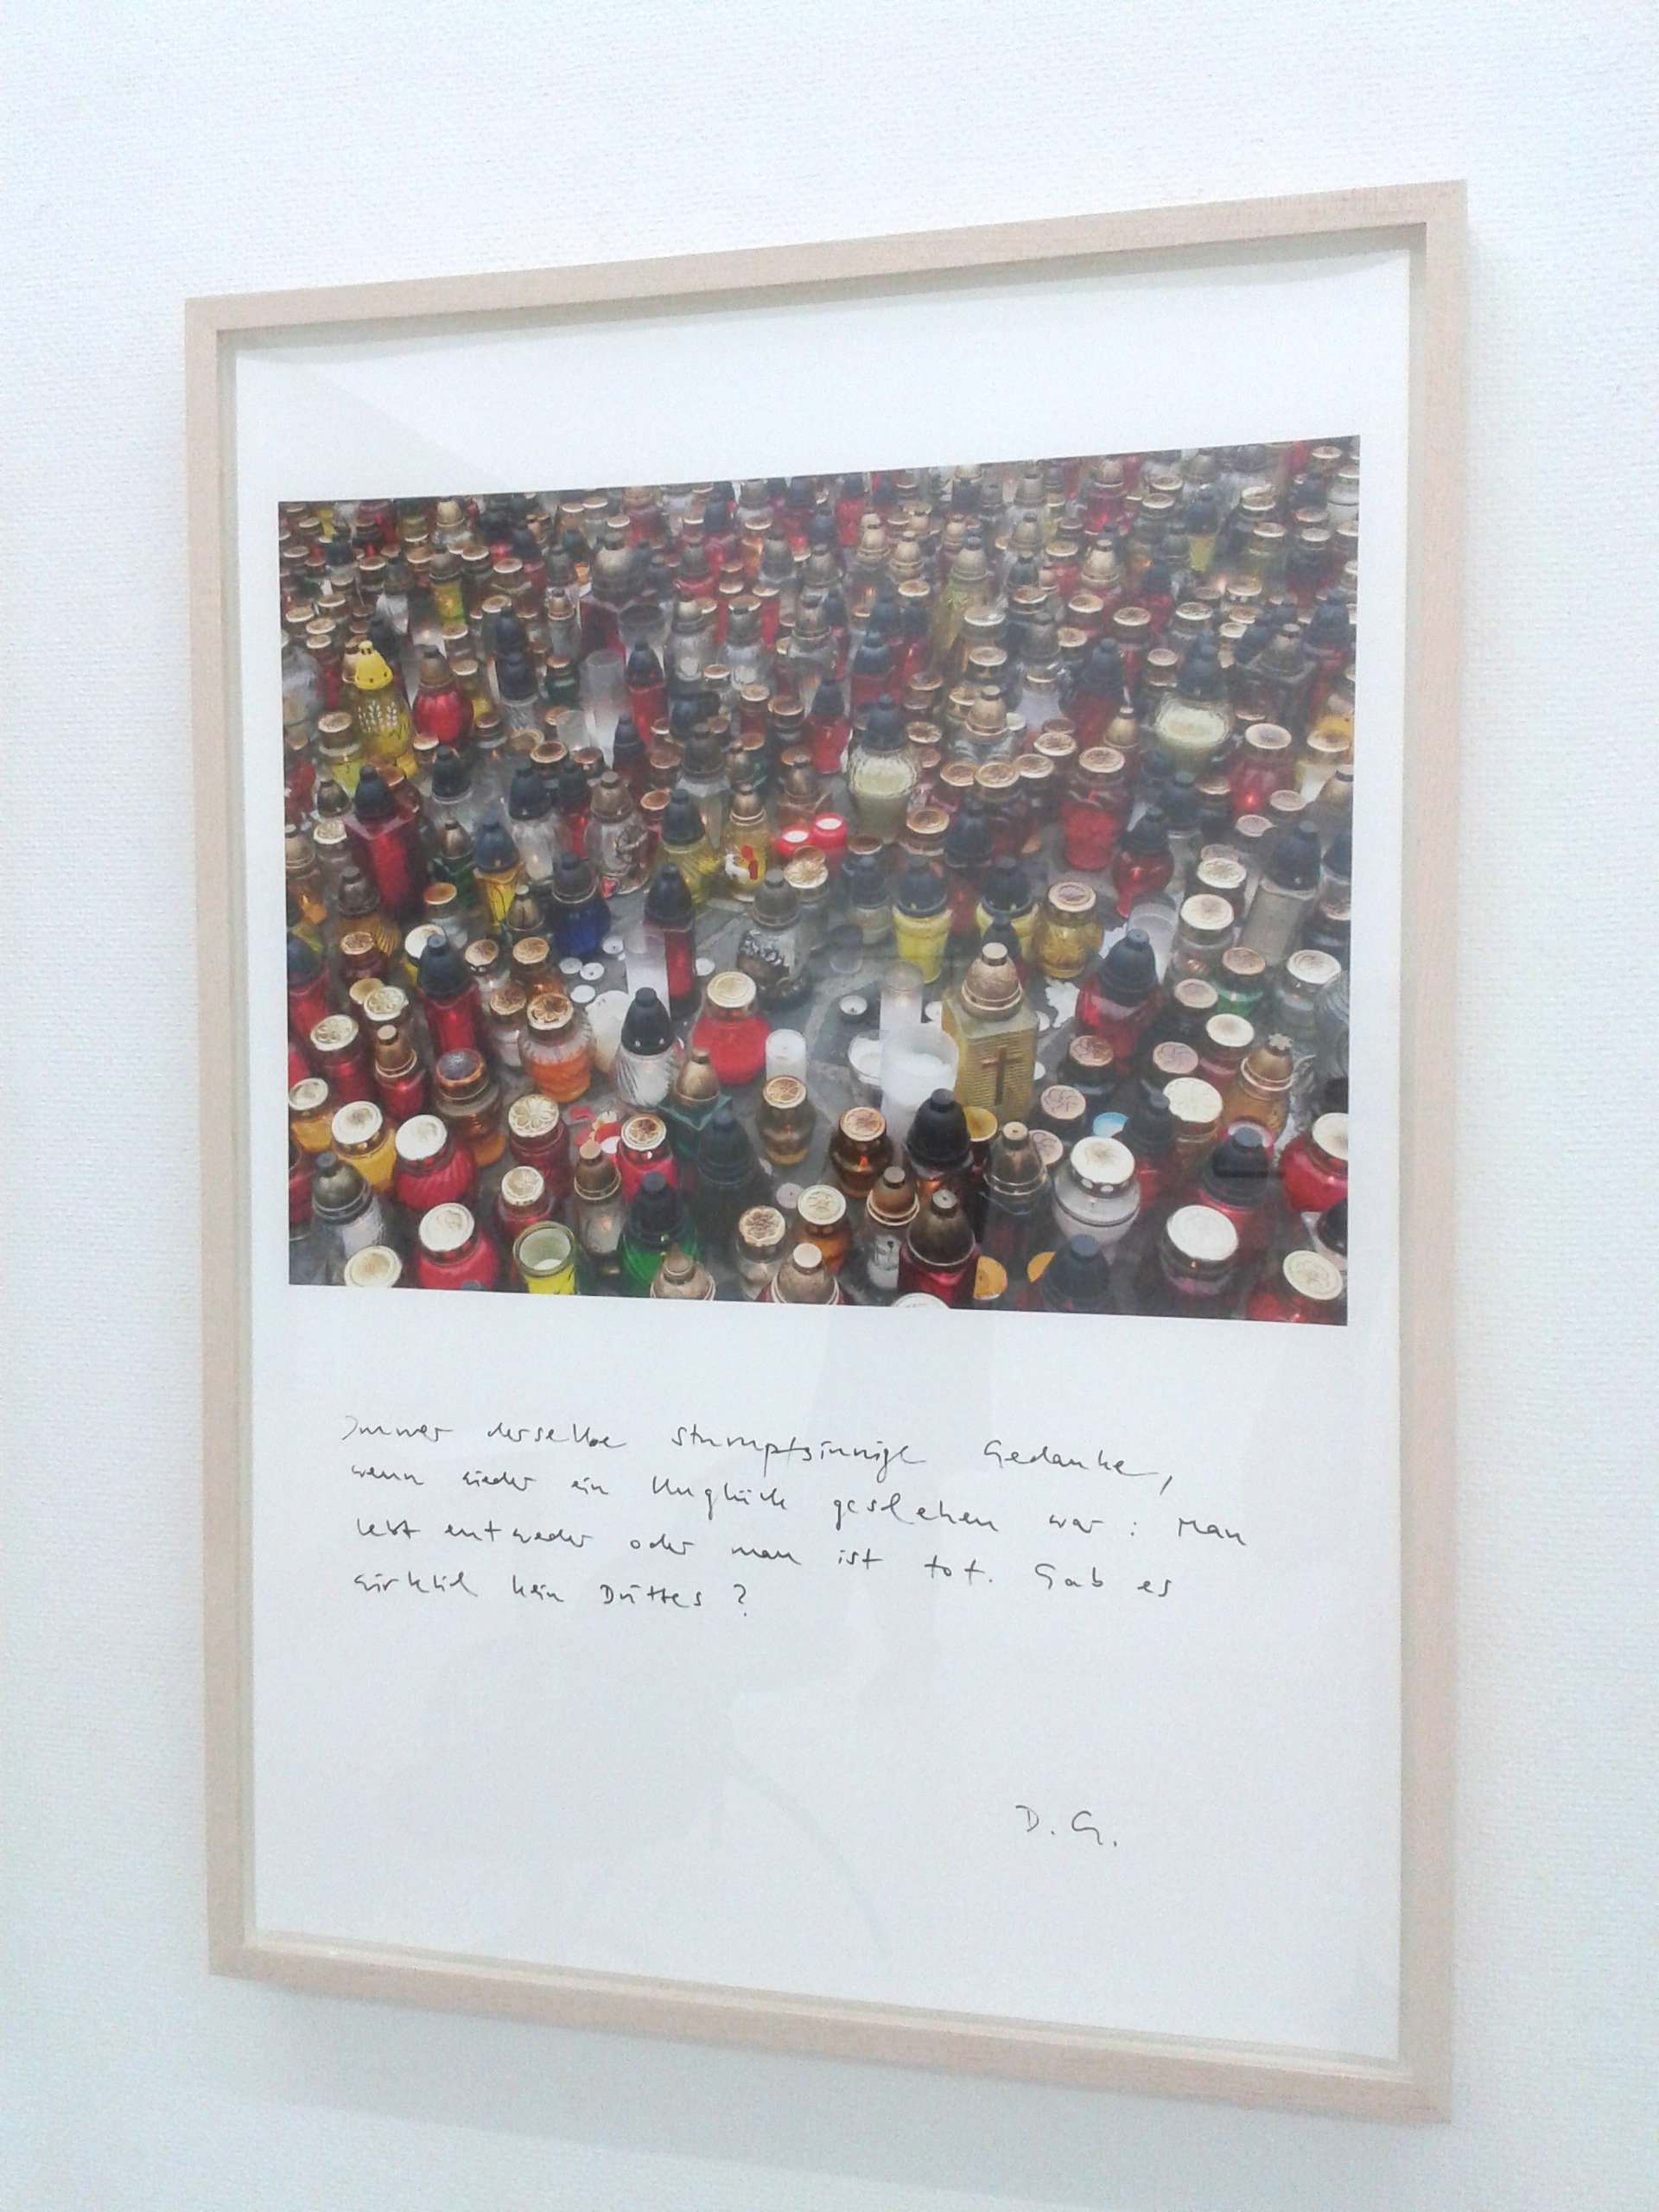 Immer derselbe stumpfsinnige Gedanke,
wenn wieder ein Unglück geschehen war: Man
lebt entweder oder man ist tot. Gab es
wirklich kein Drittes?
D. G.